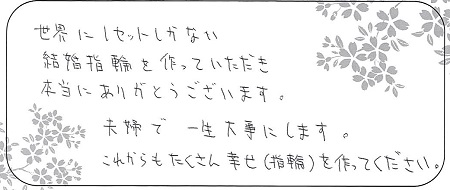 世界に1セットしかない
結婚指輪を作っていただき
本当にありがとうございます。
夫婦で一生大事にします。
これからもたくさん幸せ(指輪)を作ってください。